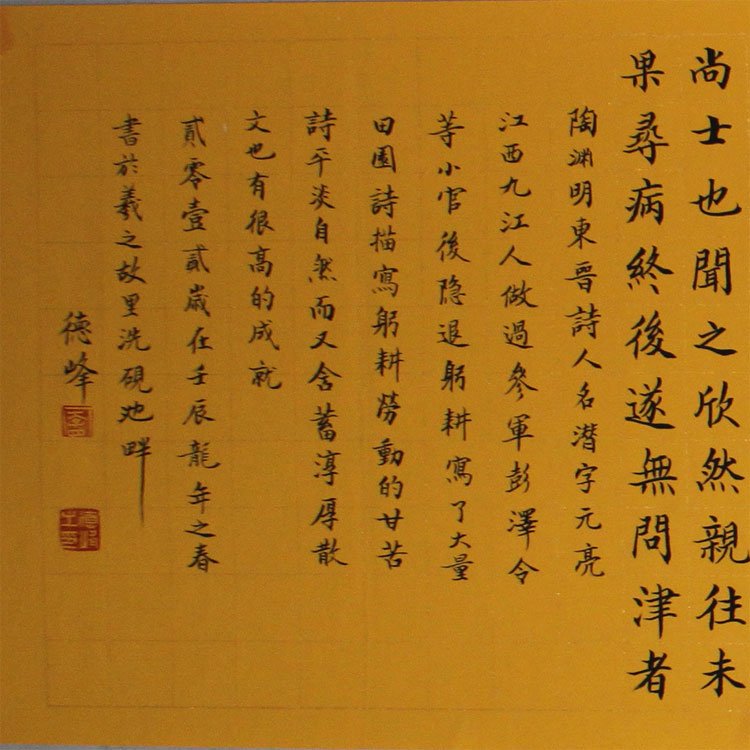 尚士也聞之欣然親往未
果尋病終後遂無問津者
陶渊明東晉詩人名潜字元亮
江西九江人做過參軍彭澤令
等小官後隐退躬耕寫了大量
田園詩描寫躬耕勞動的甘苦
詩平淡自然而又含蓄淳厚散
文也有很高的成就
貳零壹貳歲在壬辰龍年之春
書於羲之故里洗硯池畔
德峰